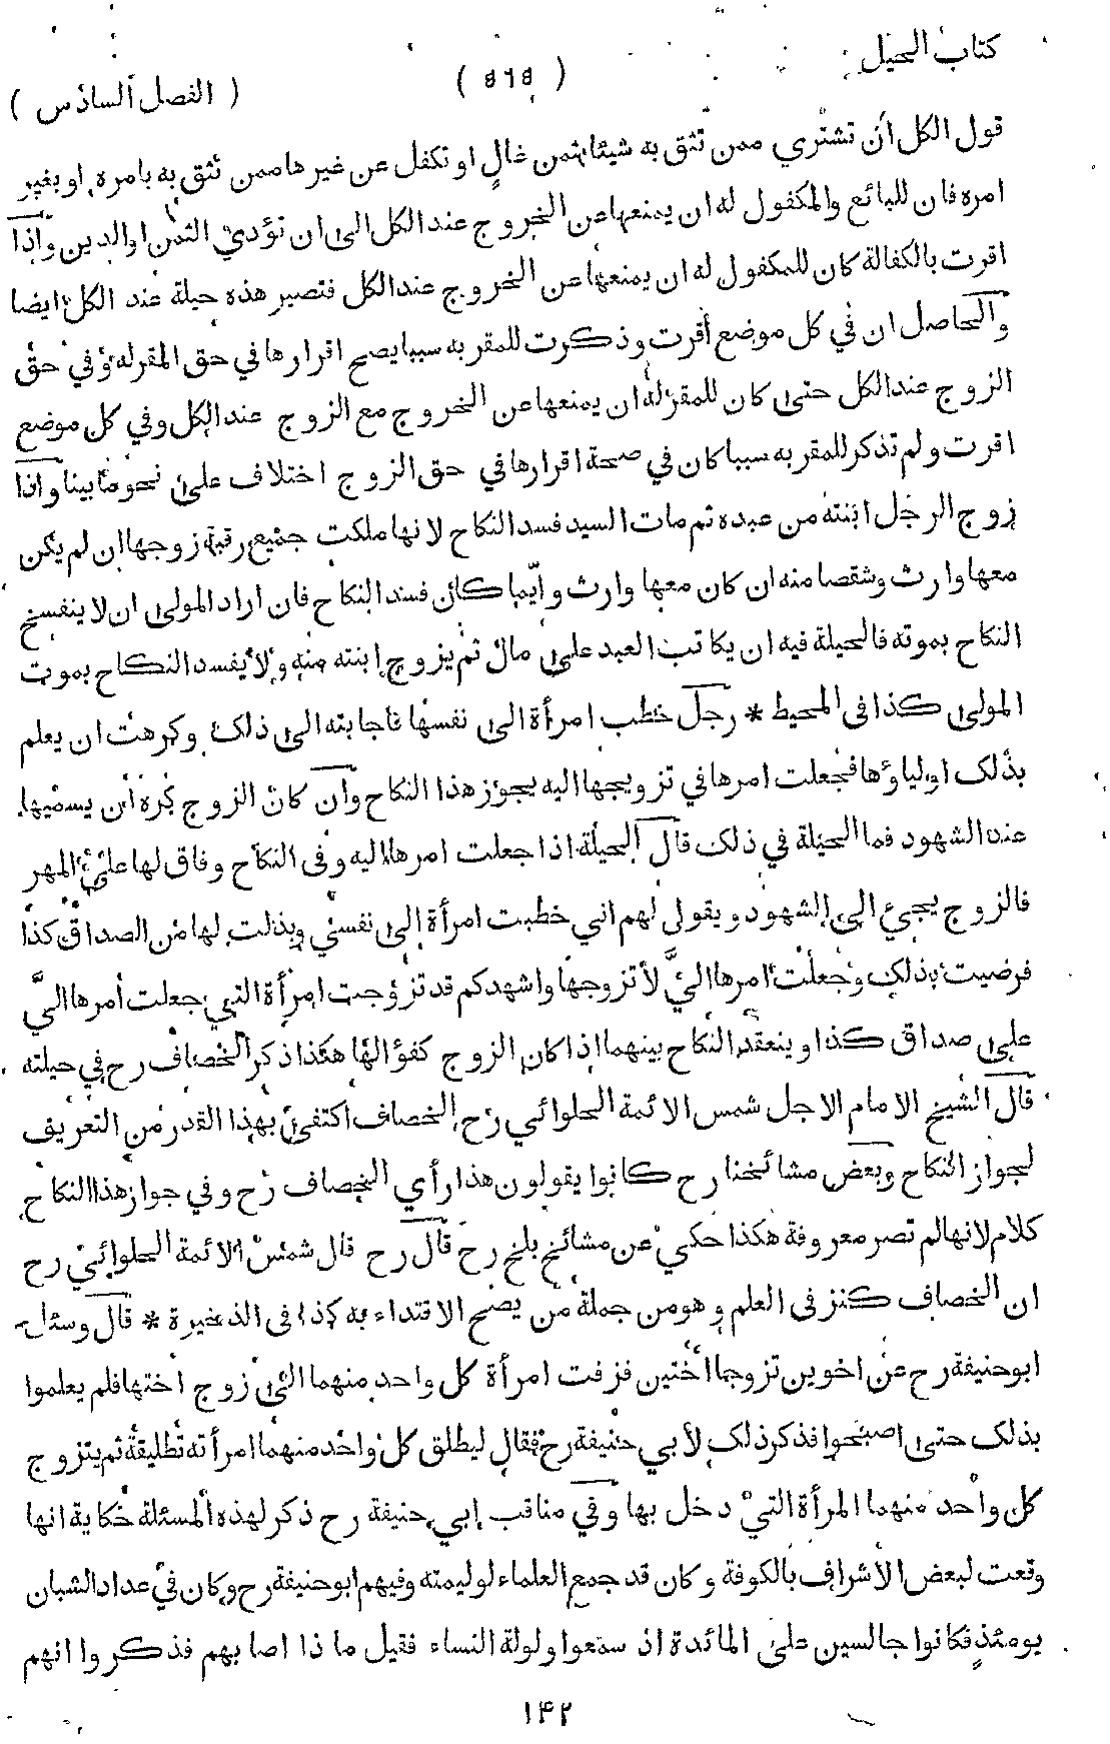 كتاب الحيل
( ٥٦٥ )
( الفصل السادس )
قول الكل ان تشتري ممن تثق به شيئا بثمن غال او تكفل عن غيرها ممن تثق به بامره او بغير
امره فان للبائع والمكفول له ان يمنعها عن الخروج عند الكل الى ان تؤدي الثمن او الدين واذا
اقرت بالكفالة كان للمكفول له ان يمنعها عن الخروج عند الكل فتصير هذه حيلة عند الكل ايضا
والحاصل ان في كل موضع أقرت وذكرت للمقر به سببا يصح اقرارها في حق المقر له وفي حق
الزوج عند الكل حتى كان للمقر له ان يمنعها عن الخروج مع الزوج عند الكل وفي كل موضع
اقرت ولم تذكر للمقر به سببا كان في صحة اقرارها في حق الزوج اختلاف على نحو ما بينا واذا
زوج الرجل ابنته من عبده ثم مات السيد فسد النكاح لانها ملكت جميع رقبة زوجها ان لم يكن
معها وارث وشقصا منه ان كان معها وارث وأيما كان فسد النكاح فان اراد المولى ان لا ينفسخ
النكاح بموته فالحيلة فيه ان يكاتب العبد على مال ثم يزوج ابنته منه ولا يفسد النكاح بموت
المولى كذا فى المحيط * رجل خطب امرأة الى نفسها فاجابته الى ذلك وكرهت ان يعلم
بذلك اولياؤها فجعلت امرها في تزويجها اليه يجوز هذا النكاح وان كان الزوج كره أن يسميها
عند الشهود فما الحيلة في ذلك قال الحيلة اذا جعلت امرها اليه وفى النكاح وفاق لها على المهر
فالزوج يجيء الى الشهود ويقول لهم اني خطبت امرأة الى نفسي وبذلت لها من الصداق كذا
فرضيت بذلك وجعلت امرها اليّ لأتزوجها واشهدكم قد تزوجت امرأة التي جعلت أمرها اليّ
على صداق كذا وينعقد النكاح بينهما اذا كان الزوج كفؤا لها هكذا ذكر الخصاف رح في حيلته
قال الشيخ الامام الاجل شمس الائمة الحلوائي رح الخصاف اكتفى بهذا القدر من التعريف
لجواز النكاح وبعض مشائخنا رح كانوا يقولون هذا رأي الخصاف رح وفي جواز هذا النكاح
كلام لانها لم تصر معروفة هكذا حكي عن مشائخ بلخ رح قال رح قال شمس الائمة الحلوائي رح
ان الخصاف كنز فى العلم وهو من جملة من يصح الاقتداء به كذا فى الذخيرة * قال وسئل
ابو حنيفة رح عن اخوين تزوجا أختين فزفت امرأة كل واحد منهما الى زوج اختها فلم يعلموا
بذلك حتى اصبحوا فذكر ذلك لأبي حنيفة رح فقال ليطلق كل واحد منهما امرأته تطليقة ثم يتزوج
كل واحد منهما المرأة التي دخل بها وفي مناقب ابي حنيفة رح ذكر لهذه المسئلة حكاية انها
وقعت لبعض الأشراف بالكوفة وكان قد جمع العلماء لوليمته وفيهم ابو حنيفة رح وكان في عداد الشبان
يومئذ فكانوا جالسين على المائدة اذ سمعوا ولولة النساء فقيل ما ذا اصابهم فذكروا انهم
١٤٢